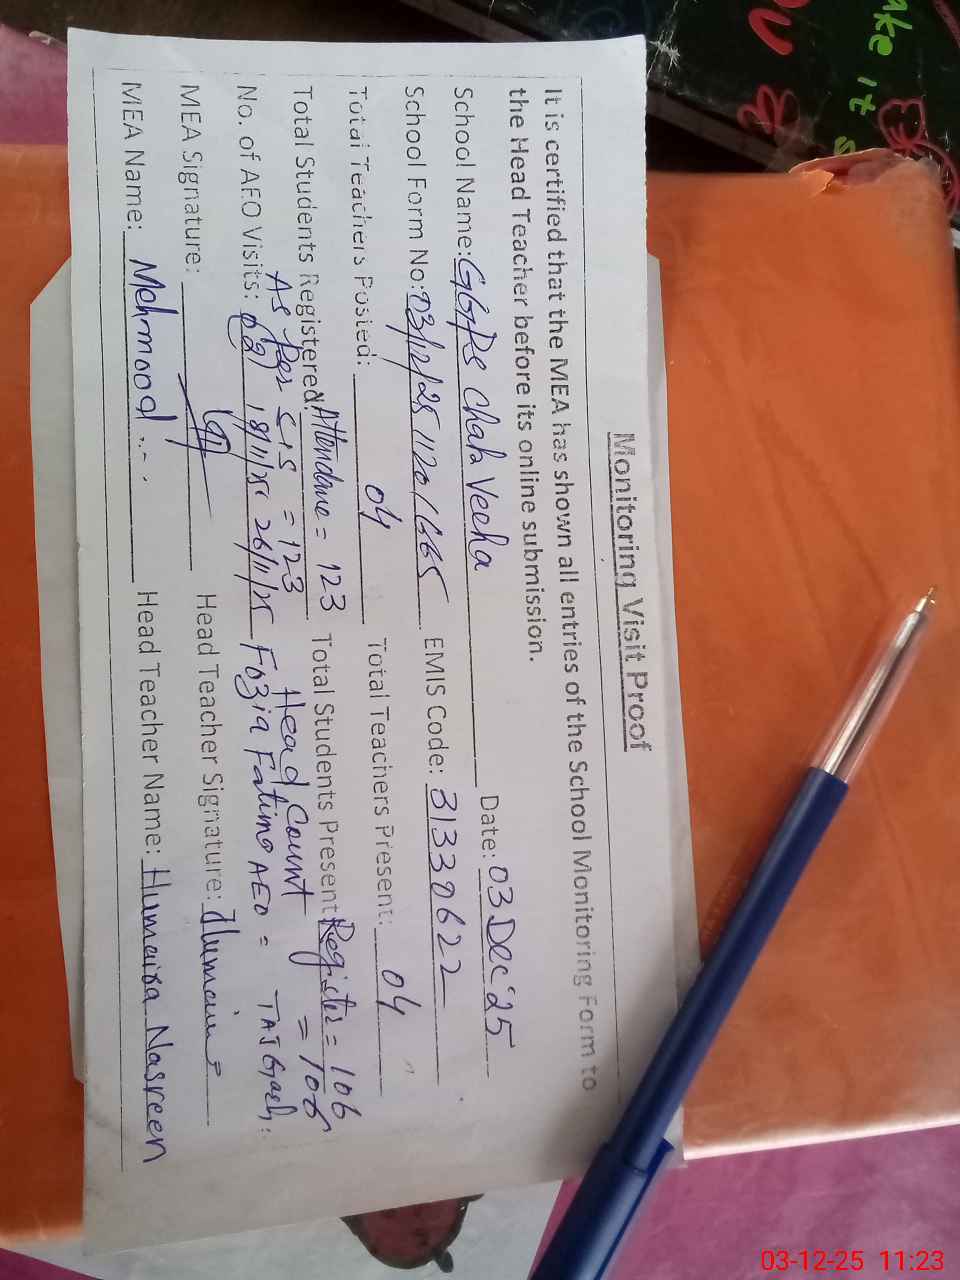 Monitoring Visit Proof
It is certified that the MEA has shown all entries of the School Monitoring Form to
the Head Teacher before its online submission.
Date: 03 Dec'25
School Name: GGPS Chak Veeha
School Form No: 03/12/25 1120 1665 EMIS Code: 31330622
Total Teachers Posted: 04 Total Teachers Present: 04
Total Students Registered: Attendance = 123 Total Students Present Register = 106
As per SIS = 123 Head Count = 106
No. of AEO Visits: 02 18/11/25 26/11/25 Fozia Fatima AEO =
MEA Signature: Head Teacher Signature: Humaira
MEA Name: Mehmood Head Teacher Name: Humaira Nasreen
ake it
03-12-25 11:23